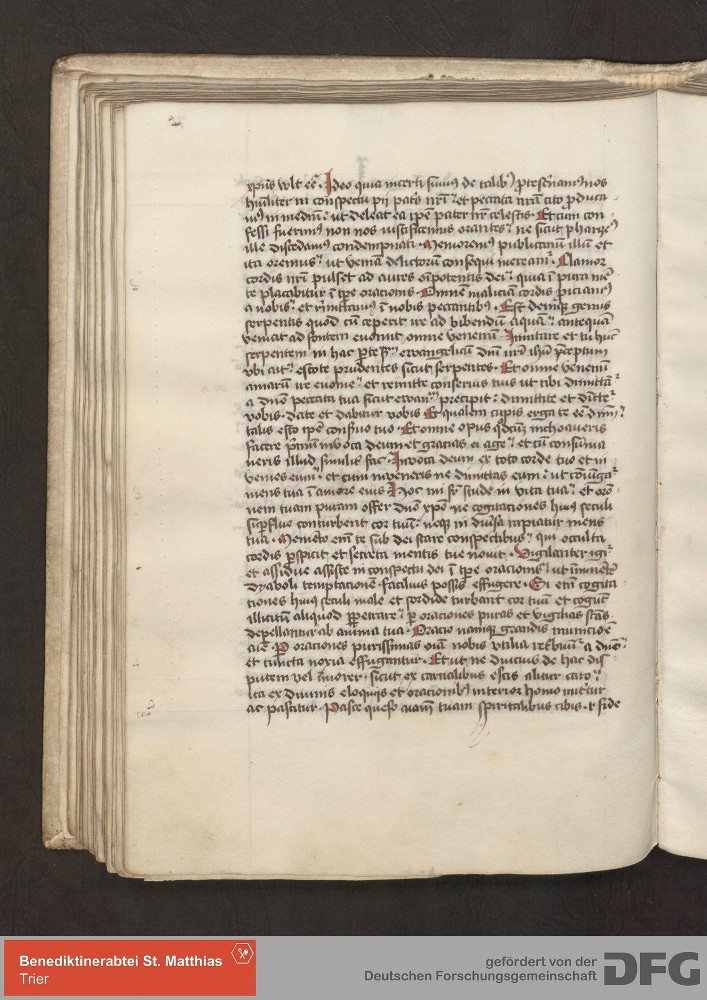 xpūs vult eē. Ideo quia incerti sumus de talib9 prosternamus nos
humiliter in conspectu pij patris nr̄i et peccata nr̄a cito produca
mus in medium ut deleat ea ipse pater nr̄ celestis. Et cum con
fessi fuerimus non nos iustificemus orantes ne sicut phariseus
ille discedamus condempnati. Memoremur publicanum illum et
ita oremus ut veniam delictorum consequi mereamur. Clamor
cordis nr̄i pulset ad aures om̄ipotentis dei quia ī pura mē
te placabitur ī tp̄e oracionis. Omnem maliciam cordis piciamus
a nobis et remittamus ī nobis peccantibus. Est deniq3 genus
serpentis quod cū ceperit ire ad bibendū aquam antequā
veniat ad fontem euomit omne venenū. Imitare et tu hunc
serpentem in hac parte ewangelicum dn̄i nr̄i ihū preceptum
vbi ait estote prudentes sicut serpentes. Et omne venenū
amarum ire euome et remitte conseruis tuis ut tibi dimittāt
a dn̄o peccata tua sicut ewan precipit dimittite et dimitte
vobis. date et dabitur vobis Et qualem cupis erga te eē dn̄m
talis esto ipē conseruo tuo. Et omne opus quodcum inchoaueris
facere primū inuoca deum et gracias ei age et cū consūma
ueris illud similiter fac. Inuoca deum ex toto corde tuo et in
uenies eum et cum inueneris ne dimittas eum ut coniunga
mens tua ī amore eius Hoc mi fr̄ stude in vita tua et oro
nem tuam puram offer dn̄o xp̄o ne cogitaciones huius seculi
superflue conturbent cor tuū neque in diuersa rapiatur mens
tua. Memēto enī te sub dei stare conspectibus qui occulta
cordis perspicit et secreta mentis tue nouit. Vigilanter igr̄
et assidue assiste in conspectu dei ī tp̄e oracionis ut iminētē
dyaboli temptacionē facilius possis effugere. Si etm̄ cogita
ciones huius seculi male et sordide turbant cor tuū et cogūt
illicitū aliquod perpetrare per oraciones puras et vigilias sc̄as
depellantur ab anima tua. Oracio namq3 grandis municio ē
aīe. Per oraciones purissimas oīa nobis vtilia a dn̄o
et cuncta noxia effugantur. Et ut ne diucius de hac dis
putem vel īmorer. sicut ex carnalibus escis alitur caro
ita ex diuinis eloquijs et oracionib9 interior homo nutritur
ac pascitur. Pasce queso aīam tuam spiritalibus cibis. fide
Benediktinerabtei St. Matthias
Trier
gefördert von der
Deutschen Forschungsgemeinschaft
DFG